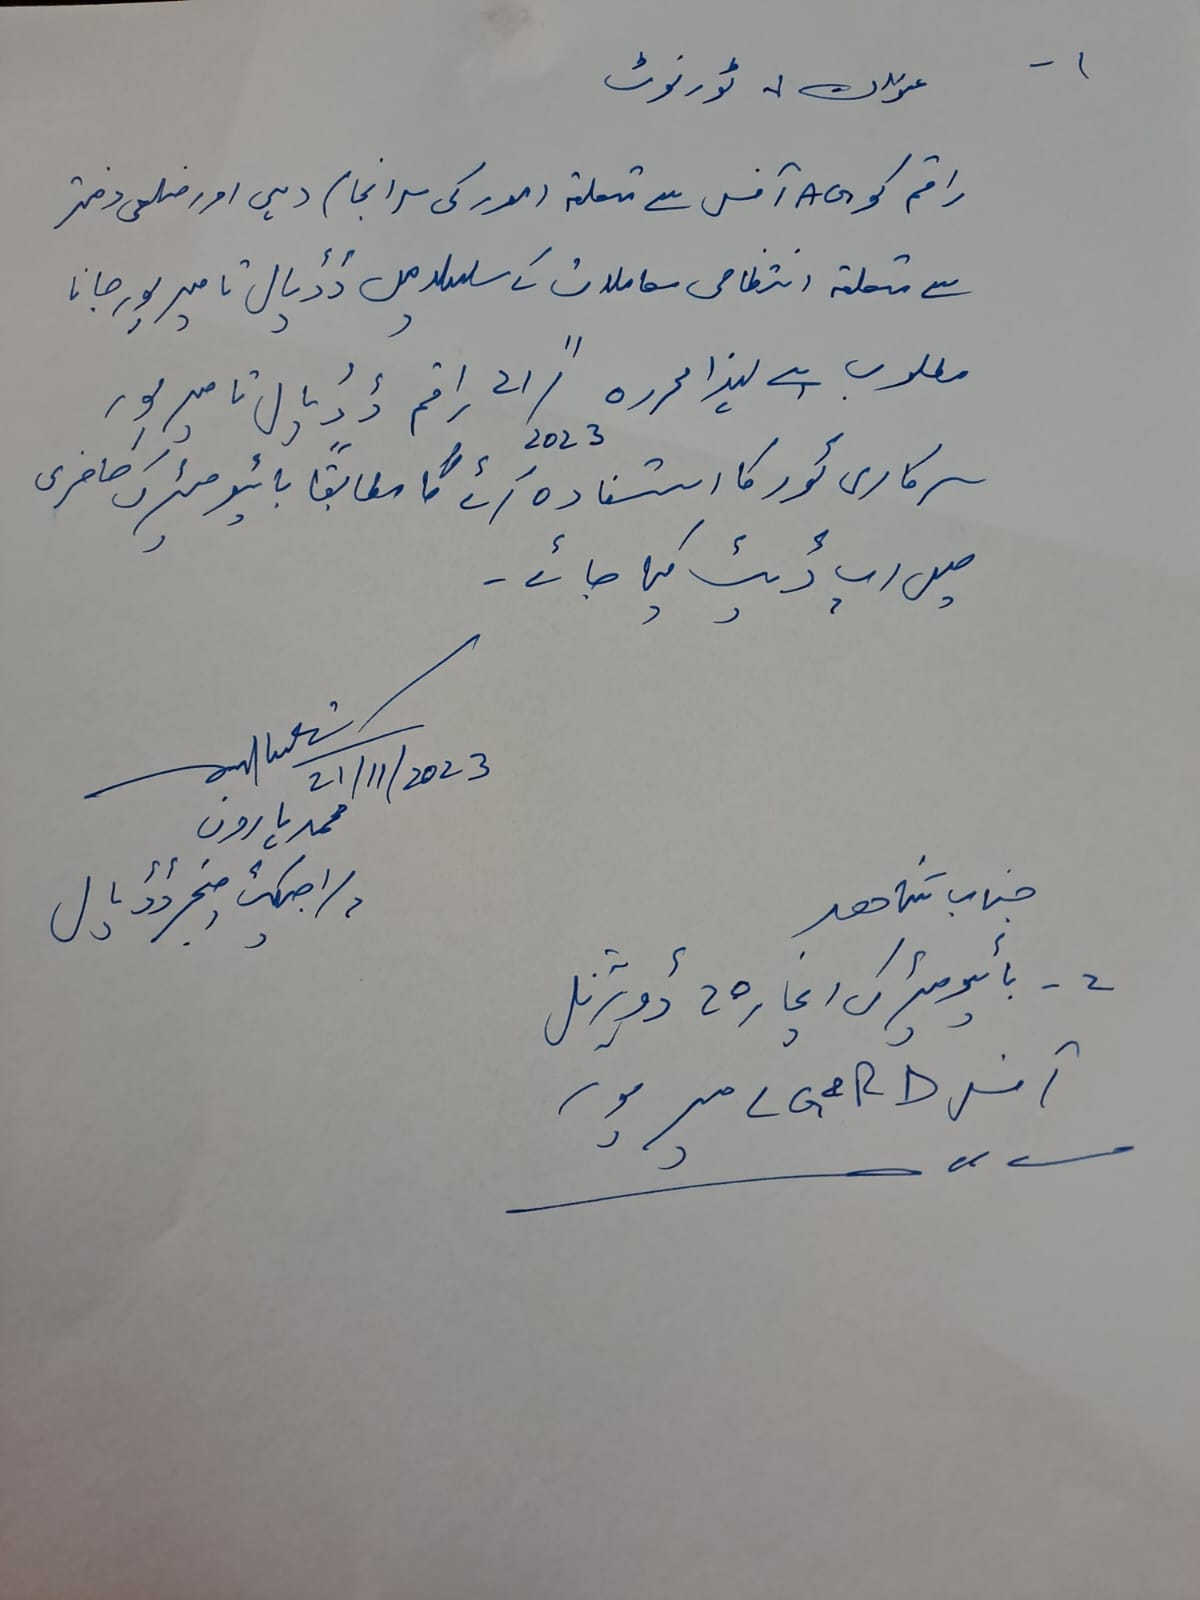 ۱-
عنوان :- ٹور نوٹ
راقم کو AG آفس سے متعلقہ امور کی سرانجام دہی اور ضلعی دفتر
سے متعلقہ انتظامی معاملات کے سلسلہ میں ڈڈیال تا میرپور جانا
مطلوب ہے لہذا محررہ 21/11/2023 راقم ڈڈیال تا میرپور
سرکاری ٹور کا استفادہ کرئے گا مطابقاً بائیومیٹرک حاضری
میں اپ ڈیٹ کیا جائے -
21/11/2023
محمد ہارون
پراجیکٹ منیجر ڈڈیال
جناب شاہد
2- بائیومیٹرک انچارج ڈویژنل
آفس LG&RD میرپور